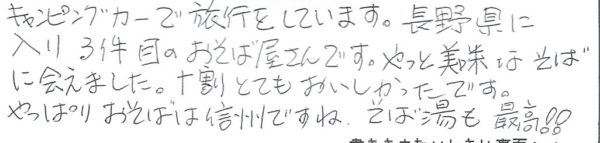 キャンピングカーで旅行をしています。長野県に
入り3件目のおそば屋さんです。やっと美味なそば
に会えました。十割とてもおいしかったです。
やっぱりおそばは信州ですね。そば湯も最高!!